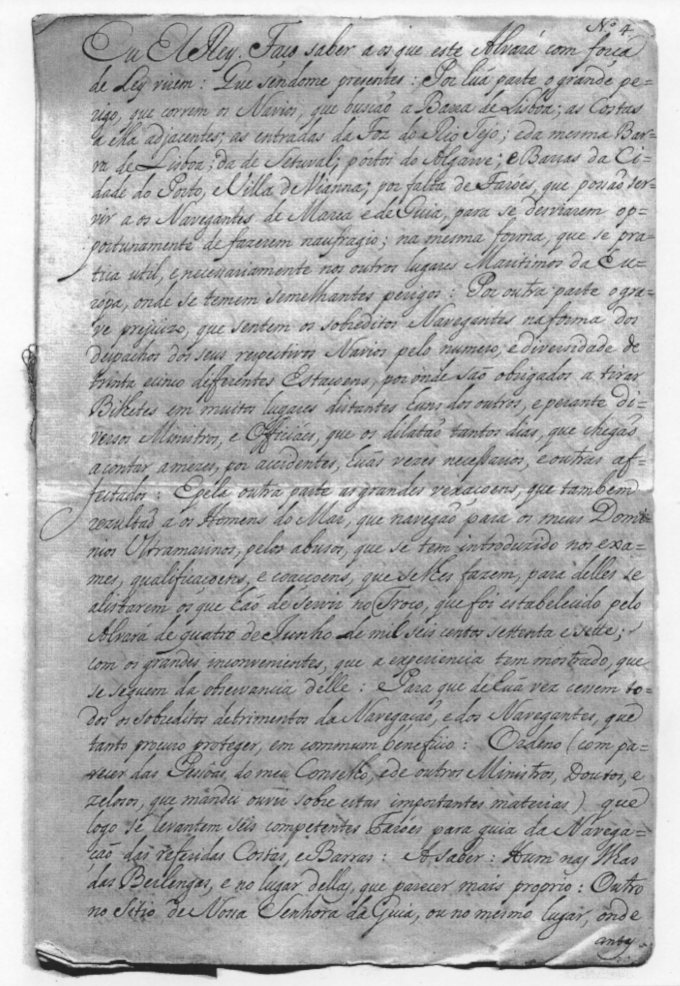 Nº 4.
Eu El Rey. Faço saber a os que este Alvará com força
de Ley virem: Que sendome presentes: Por huã parte o grande pe=
rigo, que correm os Navios, que buscaõ a Barra de Lisboa; as Costas
a ella adjacentes; as entradas da Foz do Rio Tejo; e da mesma Bar=
ra de Lisboa; da de Setuval; portos do Algarve; e Barras da Ci=
dade do Porto, e Villa de Vianna; por falta de Faróes, que possaõ ser=
vir a os Navegantes de Marca e de Guia, para se desviarem op=
portunamente de fazerem naufragio; na mesma forma, que se pra=
tica util, e necessariamente nos outros lugares Maritimos da Eu=
ropa, onde se temem semelhantes perigos: Por outra parte o gra=
ve prejuizo, que sentem os sobreditos Navegantes na forma dos
despachos dos seus respectivos Navios pelo numero, e diversidade de
trinta e cinco differentes Estaçoens, por onde saõ obrigados a tirar
Bilhetes em muitos lugares distantes huns dos outros, e perante di=
versos Ministros, e Officiáes, que os dilataõ tantos dias, que chegaõ
a contar a mezes, por accidentes, huãs vezes necessarios, e outras af=
fectados: E pela outra parte as grandes vexaçoens, que tambem
rezultaõ a os Homens do Mar, que navegaõ para os meus Domi=
nios Ultramarinos, pelos abusos, que se tem introduzido nos exa=
mes, qualificaçoens, e coacçoens, que se lhes fazem, para delles se
alistarem os que haõ de servir no Troço, que foi estabelecido pelo
Alvará de quatro de Junho de mil seis centos settenta e sette;
com os grandes inconvenientes, que a experiencia tem mostrado, que
se seguem da observancia delle: Para que de huã vez cessem to=
dos os sobreditos detrimentos da Navegaçaõ, e dos Navegantes, que
tanto procuro proteger, em commum beneficio: Ordeno (com pa=
recer das Pessoas do meu Conselho, e de outros Ministros, Doutos, e
zelosos, que mandei ouvir sobre estas importantes materias) que
logo se levantem seis competentes Faróes para guia da Navega=
çaõ das referidas Costas, e Barras: A saber: Hum nas Ilhas
das Berlengas, e no lugar dellas, que parecer mais proprio: Outro
no Sitio de Nossa Senhora da Guia, ou no mesmo lugar, onde
antes